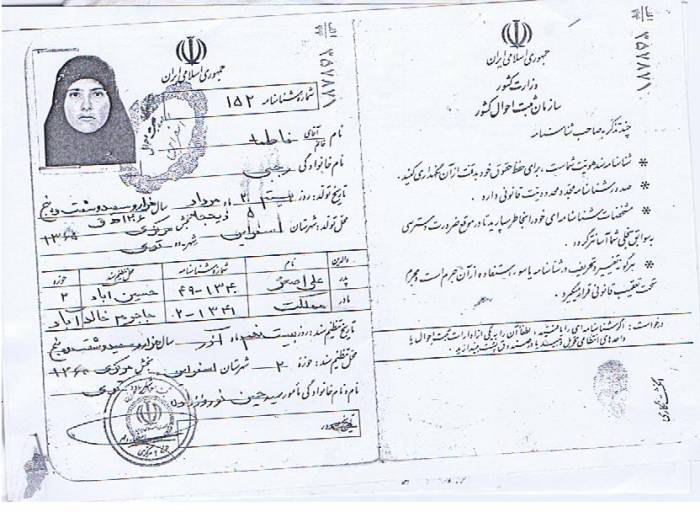 جمهوری اسلامی ایران
وزارت کشور
سازمان ثبت احوال کشور
چند تذکر به صاحب شناسنامه
* شناسنامه سند هویت شماست، برای حفظ حقوق خود به دقت از آن نگهداری کنید.
* صدور شناسنامه مجدد محدودیت قانونی دارد.
* مشخصات شناسنامه‌ای خود را بخاطر بسپارید تا در موقع ضرورت دسترسی
به سوابق سجلی شما آسانتر گردد.
* هرگونه تغییر و تحریف در شناسنامه یا سوء استفاده از آن جرم است و مجرم
تحت تعقیب قانونی قرار میگیرد.
درخواست: اگر شناسنامه‌ای را یافتید، لطفاً آن را به یکی از ادارات ثبت احوال یا
واحدهای انتظامی تحویل یا در صندوق پست بیندازید.
اثر انگشت
۳۵۷۸۷۱
جمهوری اسلامی ایران
شماره شناسنامه ۱۵۲
نام آقای خانم فاطمه
نام خانوادگی رجبی
تاریخ تولد: روز مرداد سال هزار و سیصد و شصت و پنج
۱۳۶۵
محل تولد: شهرستان اسفراین بخش مرکزی
والدین نام شماره شناسنامه محل تنظیم سند حوزه
پدر علی اصغر ۴۹-۱۳۴ حسین آباد ۲
مادر مملکت ۲-۱۳۴۱ جاجرم خالدآباد
تاریخ تنظیم سند: روز بیست ماه آذر سال هزار و سیصد و شصت و پنج
محل تنظیم سند: حوزه ۲ شهرستان اسفراین بخش مرکزی ۱۳۶۵
نام و نام خانوادگی مأمور سید حسین